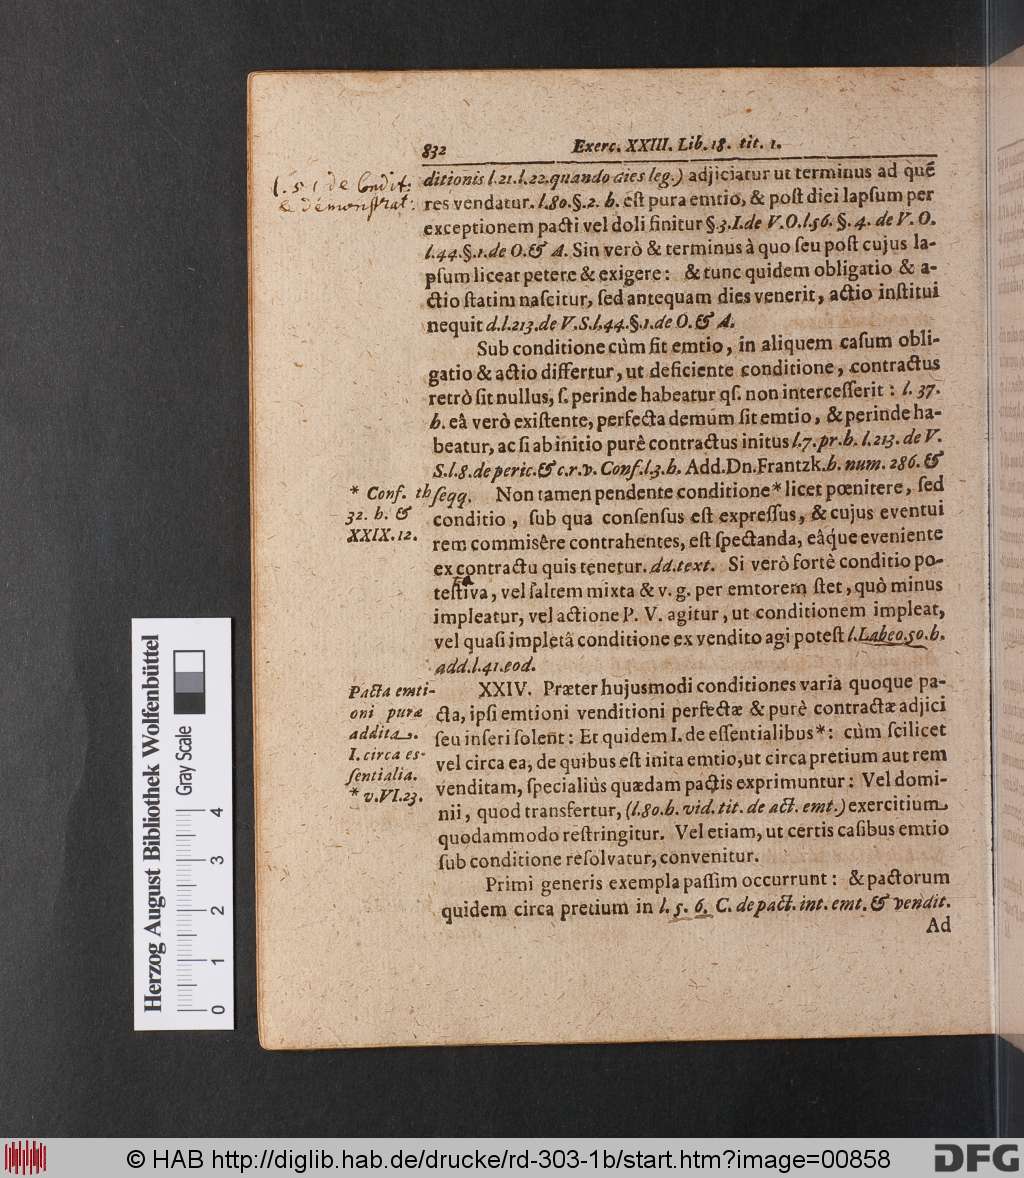 832 Exerc. XXIII. Lib. 18. tit. 1.
l. 51 de Condit:
& demonstrat:
ditionis l.21.l.22.quando dies leg.) adjiciatur ut terminus ad quē
res vendatur. l.80.§.2. h. est pura emtio, & post diei lapsum per
exceptionem pacti vel doli finitur §.3.I.de V.O.l.56. §. 4. de V. O.
l.44.§.1.de O.& A. Sin verò & terminus à quo seu post cujus la-
psum liceat petere & exigere: & tunc quidem obligatio & a-
ctio statim nascitur, sed antequam dies venerit, actio institui
nequit d.l.213.de V.S.l.44.§.1.de O.& A.
Sub conditione cùm sit emtio, in aliquem casum obli-
gatio & actio differtur, ut deficiente conditione, contractus
retrò sit nullus, s. perinde habeatur qs. non intercesserit: l. 37.
h. eâ verò existente, perfecta demum sit emtio, & perinde ha-
beatur, ac si ab initio purè contractus initus l.7.pr.h. l.213. de V.
S.l.8.de peric.& c.r.v. Conf.l.3.h. Add.Dn.Frantzk.h. num. 286. &
seqq. Non tamen pendente conditione* licet pœnitere, sed
* Conf. th
32. h. &
XXIX.12.
conditio, sub qua consensus est expressus, & cujus eventui
rem commisêre contrahentes, est spectanda, eâque eveniente
ex contractu quis tenetur. dd.text. Si verò fortè conditio po-
testiva, vel saltem mixta & v. g. per emtorem stet, quò minus
impleatur, vel actione P. V. agitur, ut conditionem impleat,
vel quasi impletâ conditione ex vendito agi potest l.Labeo.50.h.
add.l.41.eod.
Pacta emti-
oni puræ
addita.
I. circa es-
sentialia.
* v.VI.23.
XXIV. Præter hujusmodi conditiones varia quoque pa-
cta, ipsi emtioni venditioni perfectæ & purè contractæ adjici
seu inseri solent: Et quidem I. de essentialibus*: cùm scilicet
vel circa ea, de quibus est inita emtio, ut circa pretium aut rem
venditam, specialiùs quædam pactis exprimuntur: Vel domi-
nii, quod transfertur, (l.80.h. vid. tit. de act. emt.) exercitium
quodammodo restringitur. Vel etiam, ut certis casibus emtio
sub conditione resolvatur, convenitur.
Primi generis exempla passim occurrunt: & pactorum
quidem circa pretium in l. 5. 6. C. de pact. int. emt. & vendit.
Ad
Herzog August Bibliothek Wolfenbüttel
Gray Scale
0 1 2 3 4
© HAB http://diglib.hab.de/drucke/rd-303-1b/start.htm?image=00858
DFG